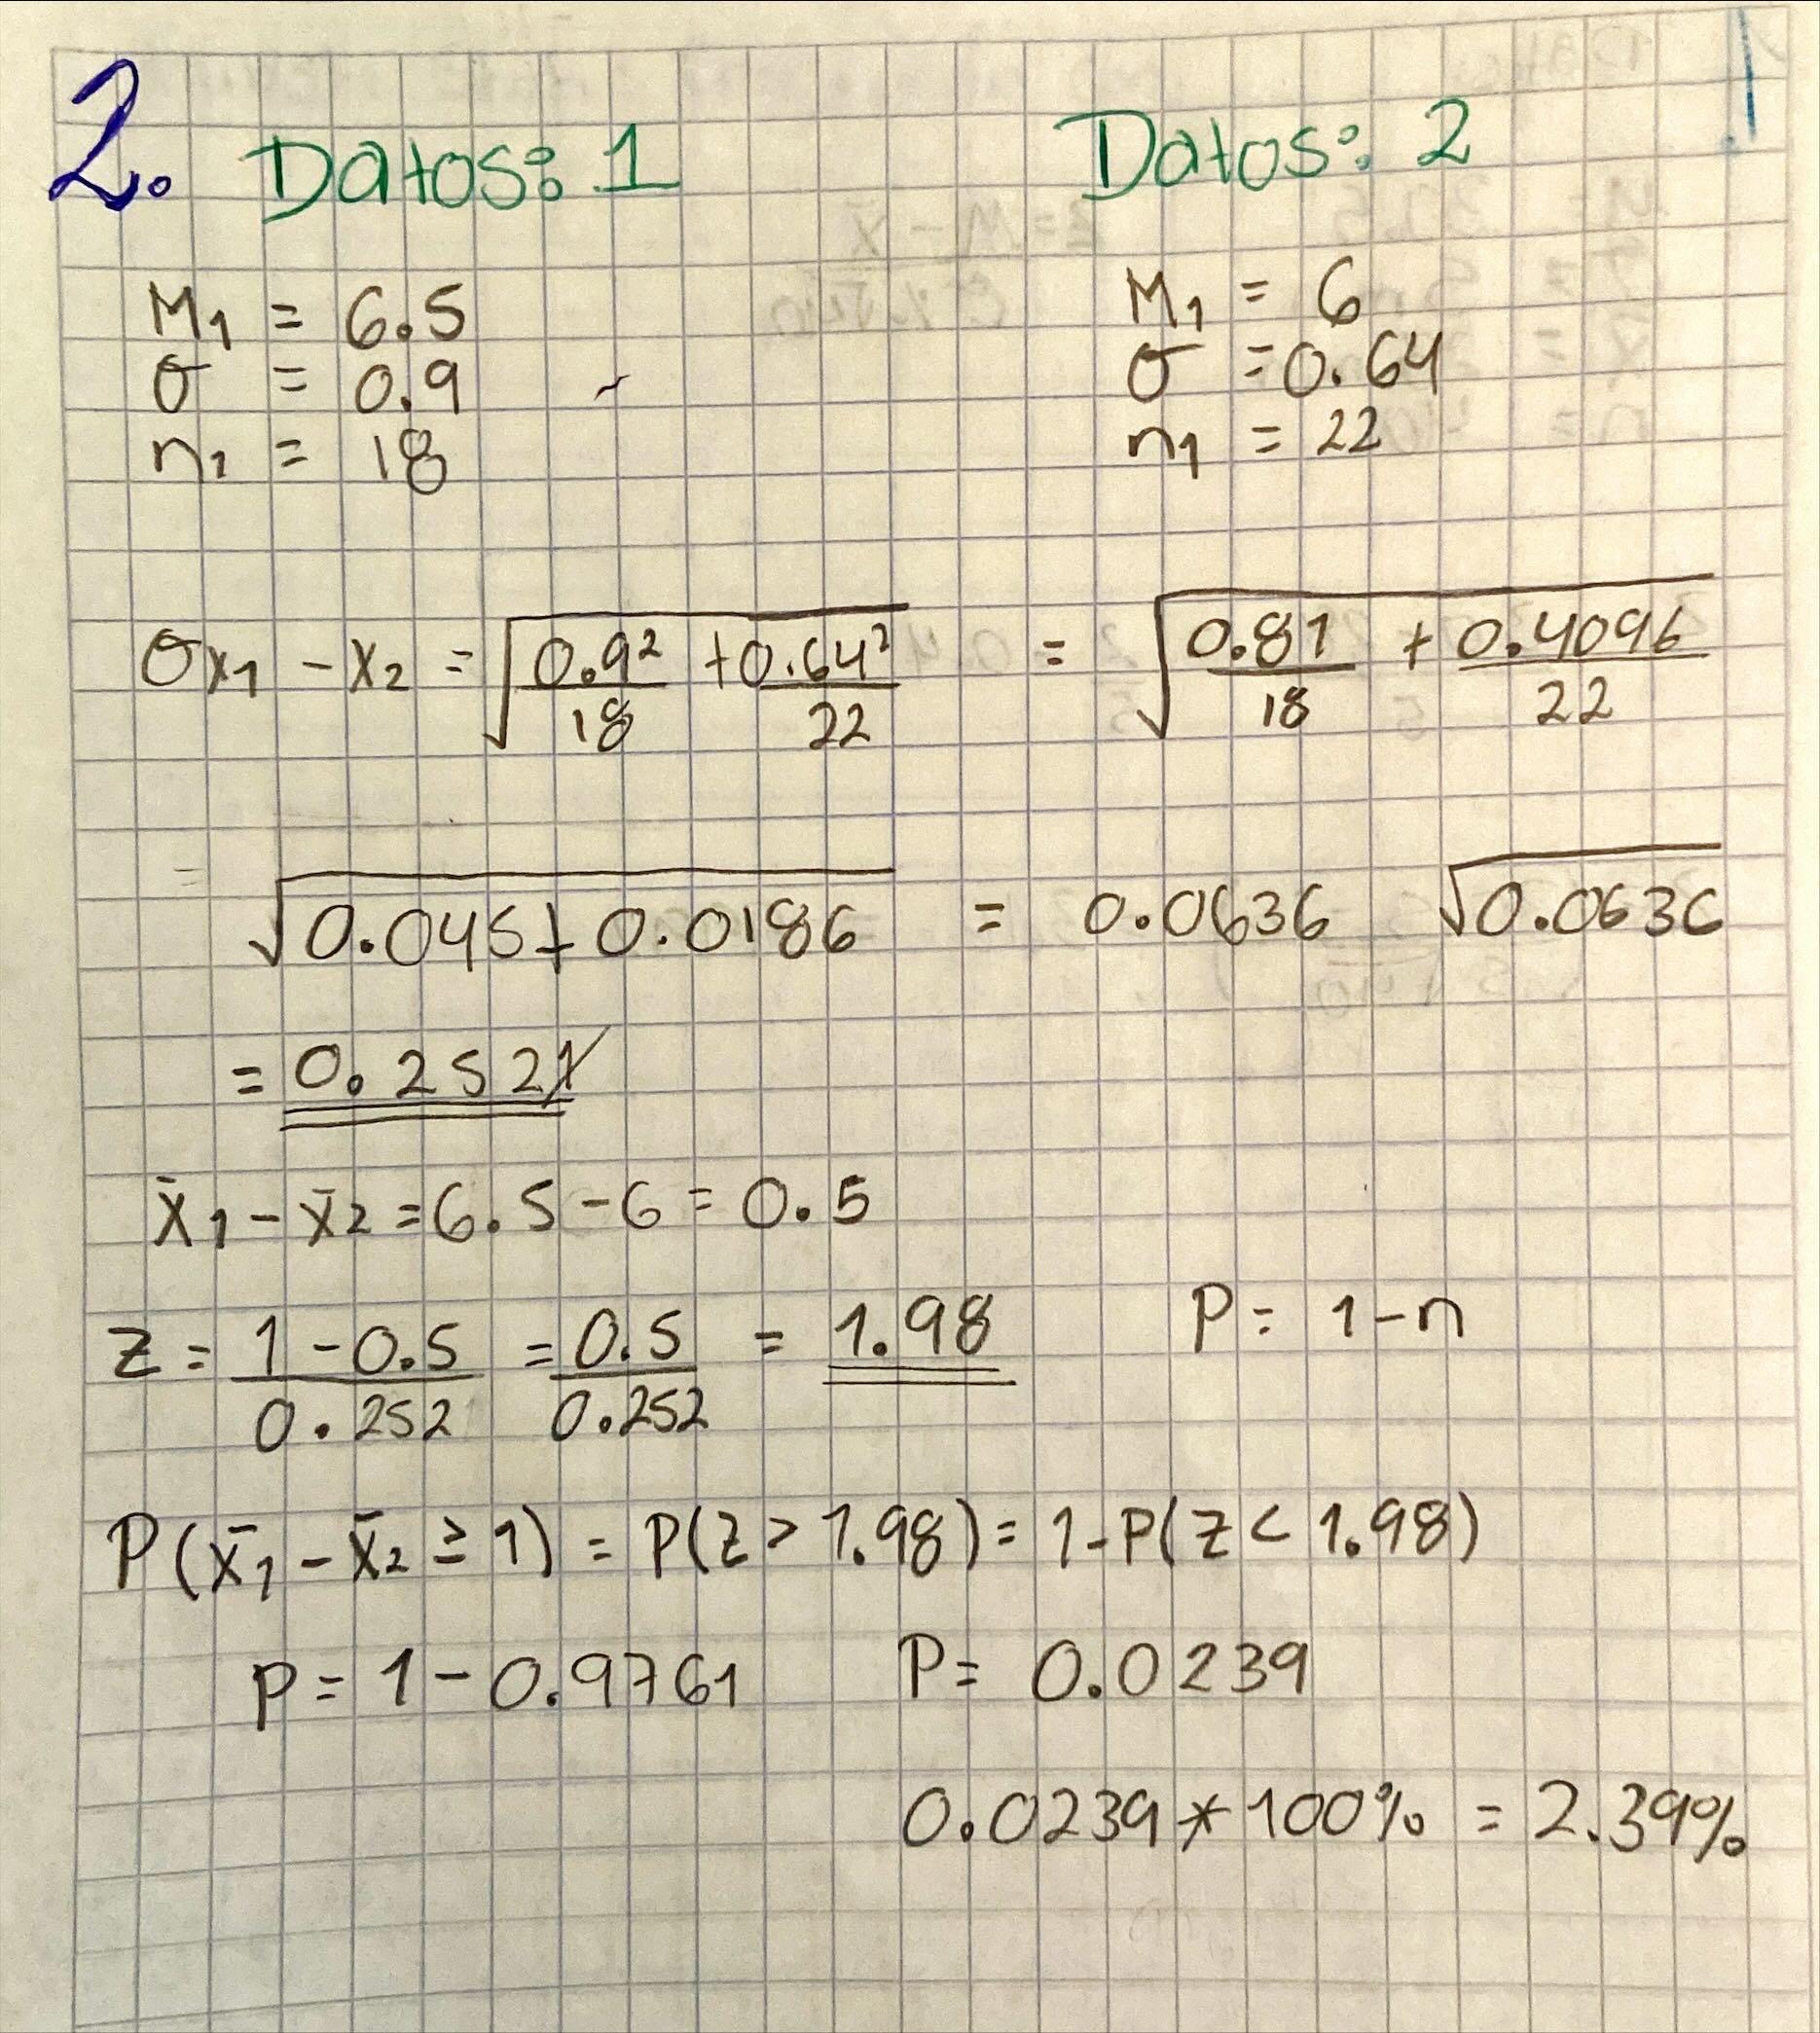 2. Datos: 1 Datos: 2
M₁ = 6.5 M₁ = 6
σ = 0.9 σ = 0.64
n₁ = 18 n₁ = 22
σx₁ - x₂ = √(0.9²/18 + 0.64²/22) = √(0.81/18 + 0.4096/22)
= √(0.045 + 0.0186) = 0.0636 √0.0636
= 0.252
x̄₁ - x̄₂ = 6.5 - 6 = 0.5
z = (1 - 0.5)/0.252 = 0.5/0.252 = 1.98 P = 1 - n
P(x̄₁ - x̄₂ ≥ 1) = P(z > 1.98) = 1 - P(z < 1.98)
p = 1 - 0.9761 P = 0.0239
0.0239 * 100% = 2.39%